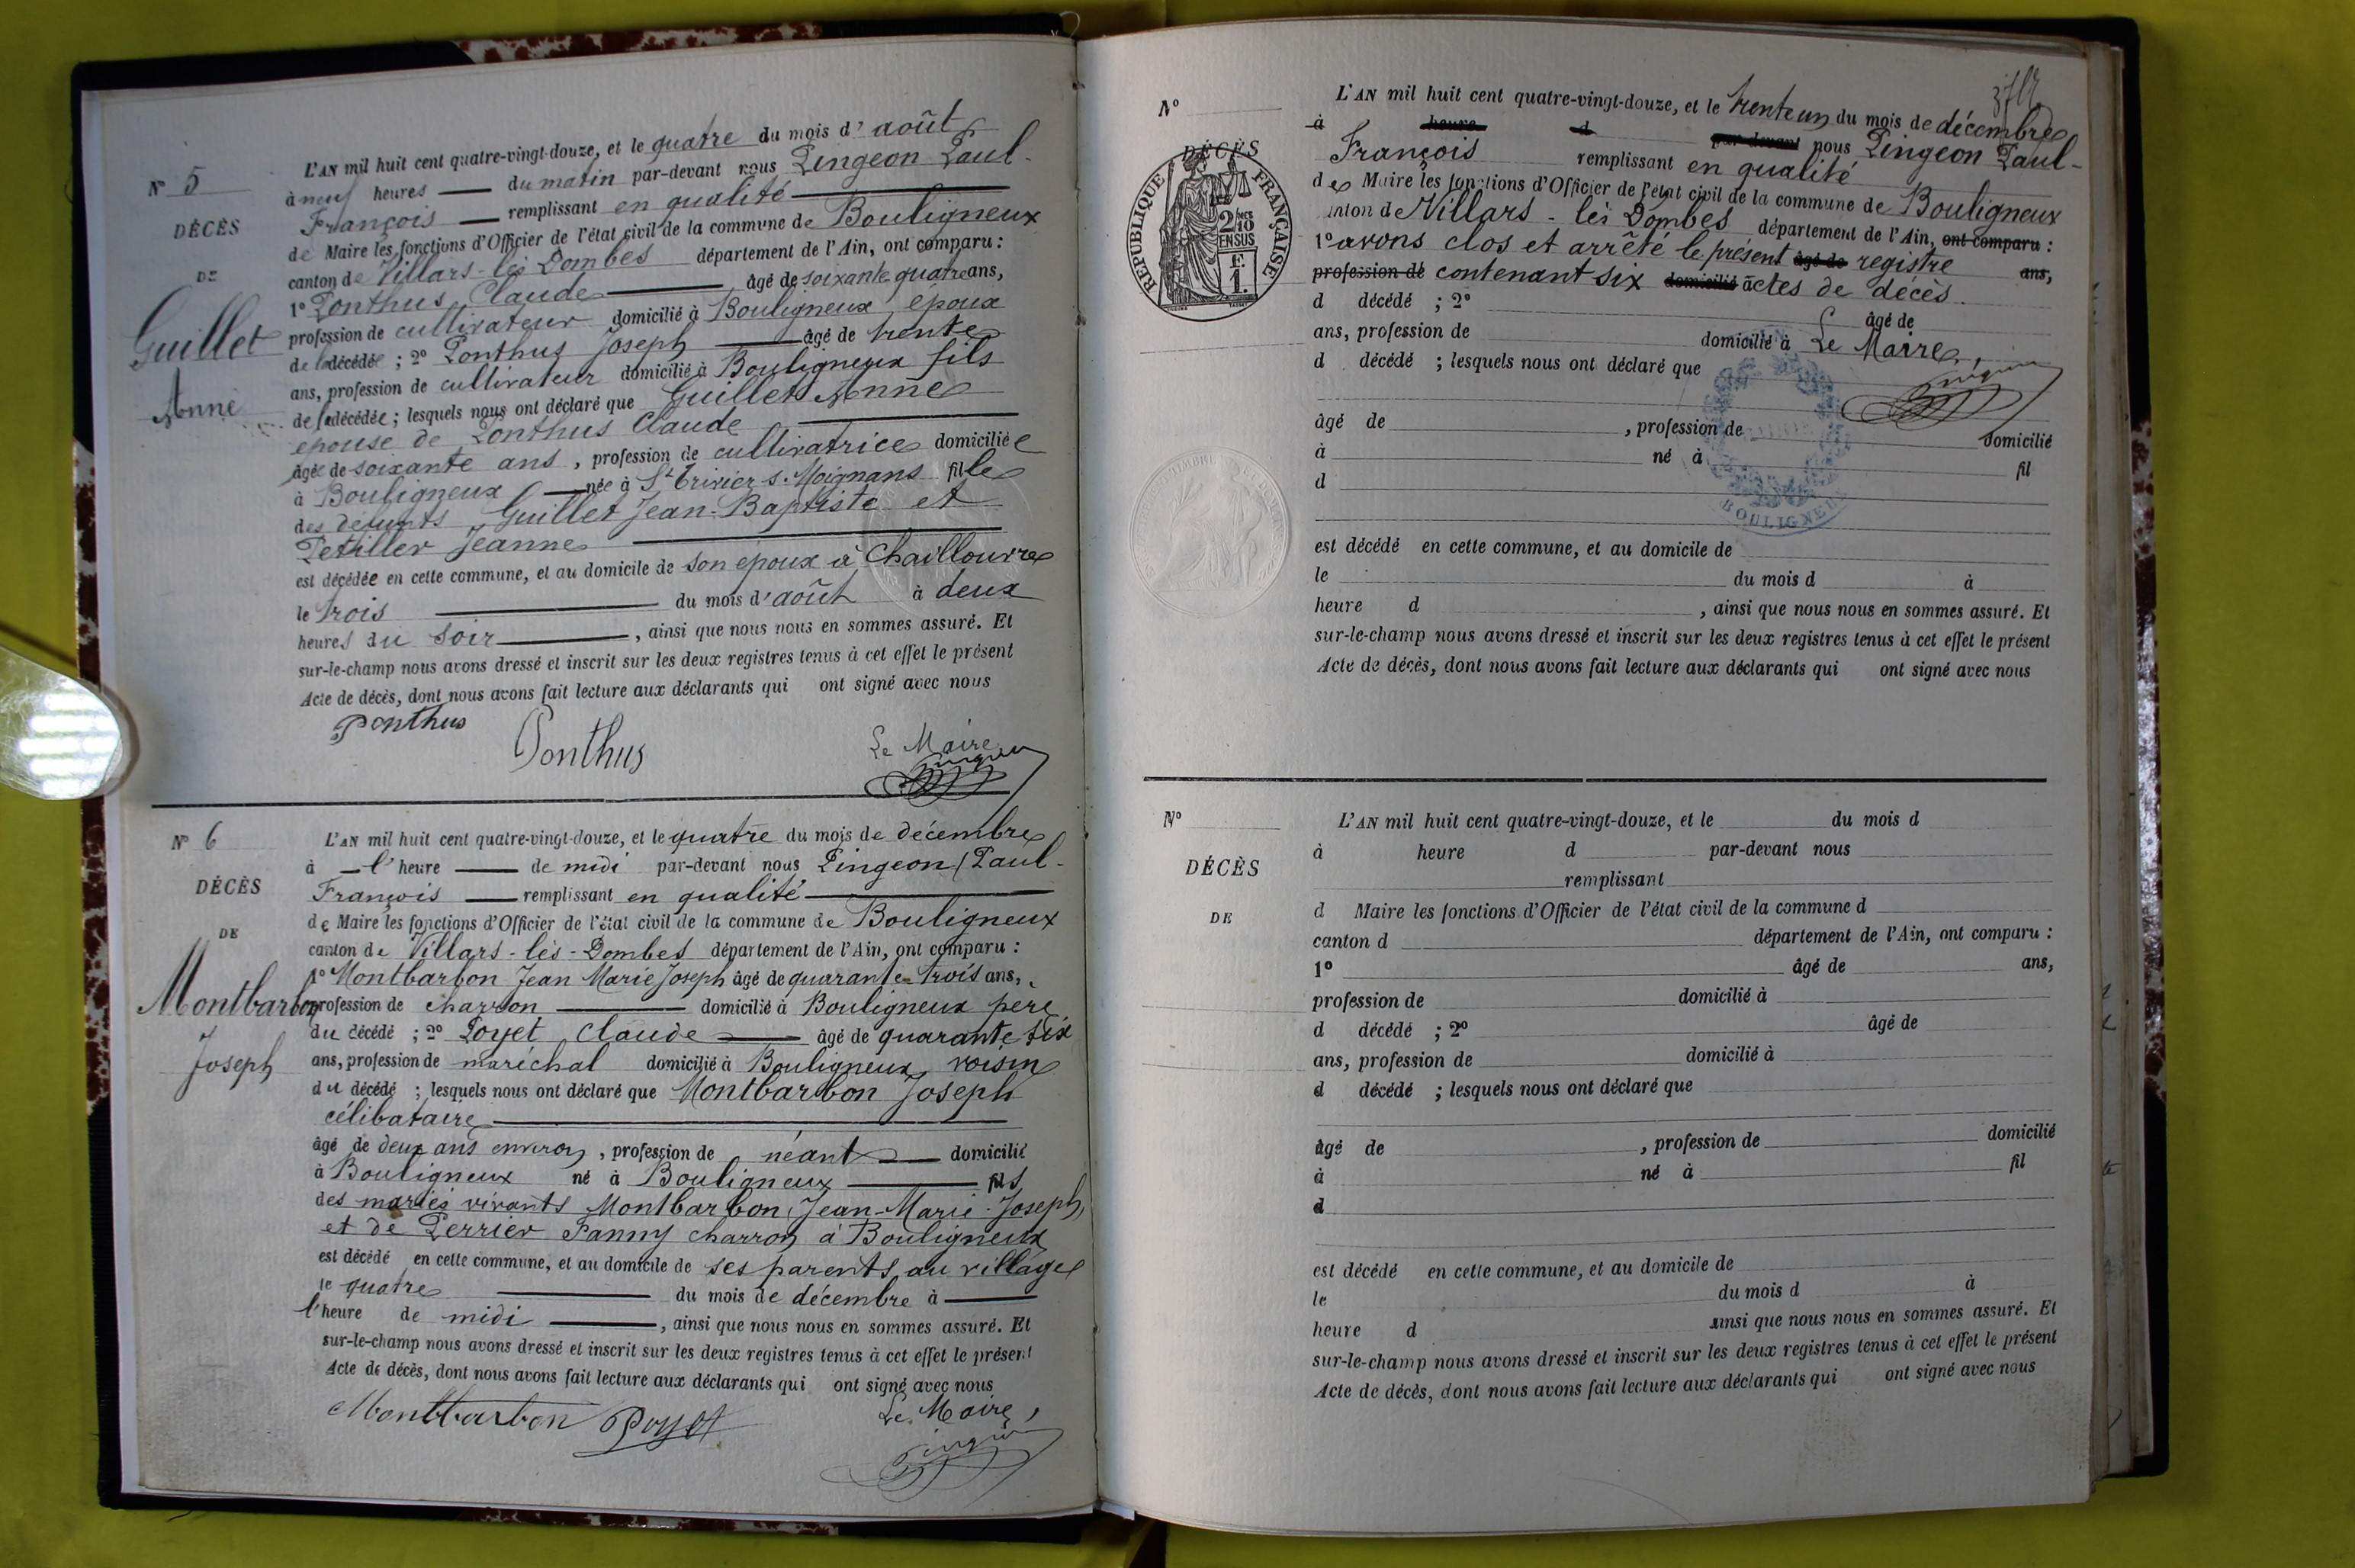 N° 5
DÉCÈS
DE
Guillet
Anne
L'AN mil huit cent quatre-vingt-douze, et le quatre du mois d'août
à neuf heures du matin par-devant nous Pingeon Paul-
François remplissant en qualité
de Maire les fonctions d'Officier de l'état civil de la commune de Bouligneux
canton de Villars-lès-Dombes département de l'Ain, ont comparu :
1° Ponthus Claude âgé de soixante quatre ans,
profession de cultivateur domicilié à Bouligneux époux
de la décédée ; 2° Ponthus Joseph âgé de trente
ans, profession de cultivateur domicilié à Bouligneux fils
de la décédée ; lesquels nous ont déclaré que Guillet Anne
épouse de Ponthus Claude
âgée de soixante ans, profession de cultivatrice domiciliée
à Bouligneux née à St Trivier s. Moignans fille
des défunts Guillet Jean-Baptiste et
Petiller Jeanne
est décédée en cette commune, et au domicile de son époux à Chaillouvre
le trois du mois d'août à deux
heures du soir, ainsi que nous nous en sommes assuré. Et
sur-le-champ nous avons dressé et inscrit sur les deux registres tenus à cet effet le présent
Acte de décès, dont nous avons fait lecture aux déclarants qui ont signé avec nous
Ponthus
Ponthus
Le Maire
Pingeon
N° 6
DÉCÈS
DE
Montbarbon
Joseph
L'AN mil huit cent quatre-vingt-douze, et le quatre du mois de décembre
à l'heure de midi par-devant nous Pingeon Paul-
François remplissant en qualité
de Maire les fonctions d'Officier de l'état civil de la commune de Bouligneux
canton de Villars-lès-Dombes département de l'Ain, ont comparu :
1° Montbarbon Jean Marie Joseph âgé de quarante-trois ans,
profession de charron domicilié à Bouligneux père
du décédé ; 2° Poyet Claude âgé de quarante six
ans, profession de maréchal domicilié à Bouligneux, voisin
du décédé ; lesquels nous ont déclaré que Montbarbon Joseph
célibataire
âgé de deux ans environ, profession de néant domicilié
à Bouligneux né à Bouligneux fils
des mariés vivants Montbarbon Jean-Marie-Joseph,
et de Perrier Fanny charron à Bouligneux
est décédé en cette commune, et au domicile de ses parents au village
le quatre du mois de décembre à
l'heure de midi, ainsi que nous nous en sommes assuré. Et
sur-le-champ nous avons dressé et inscrit sur les deux registres tenus à cet effet le présent
Acte de décès, dont nous avons fait lecture aux déclarants qui ont signé avec nous
Montbarbon Poyet
Le Maire,
Pingeon
N°
DÉCÈS
RÉPUBLIQUE FRANÇAISE
2/10 EN SUS
F 1
L'AN mil huit cent quatre-vingt-douze, et le trente un du mois de décembre
à heure d par-devant nous Pingeon Paul-
François remplissant en qualité
de Maire les fonctions d'Officier de l'état civil de la commune de Bouligneux
canton de Villars-lès Dombes département de l'Ain, ont comparu :
1° avons clos et arrêté le présent âgé de registre ans,
profession de contenant six domicilié actes de décès.
d décédé ; 2° âgé de
ans, profession de domicilié à Le Maire,
d décédé ; lesquels nous ont déclaré que Pingeon
âgé de , profession de domicilié
à né à fil
d
BOULIGNEUX
est décédé en cette commune, et au domicile de
le du mois d à
heure d , ainsi que nous nous en sommes assuré. Et
sur-le-champ nous avons dressé et inscrit sur les deux registres tenus à cet effet le présent
Acte de décès, dont nous avons fait lecture aux déclarants qui ont signé avec nous
N°
DÉCÈS
DE
L'AN mil huit cent quatre-vingt-douze, et le du mois d
à heure d par-devant nous
remplissant
d Maire les fonctions d'Officier de l'état civil de la commune d
canton d département de l'Ain, ont comparu :
1° âgé de ans,
profession de domicilié à
d décédé ; 2° âgé de
ans, profession de domicilié à
d décédé ; lesquels nous ont déclaré que
âgé de , profession de domicilié
à né à fil
d
est décédé en cette commune, et au domicile de
le du mois d à
heure d ainsi que nous nous en sommes assuré. Et
sur-le-champ nous avons dressé et inscrit sur les deux registres tenus à cet effet le présent
Acte de décès, dont nous avons fait lecture aux déclarants qui ont signé avec nous